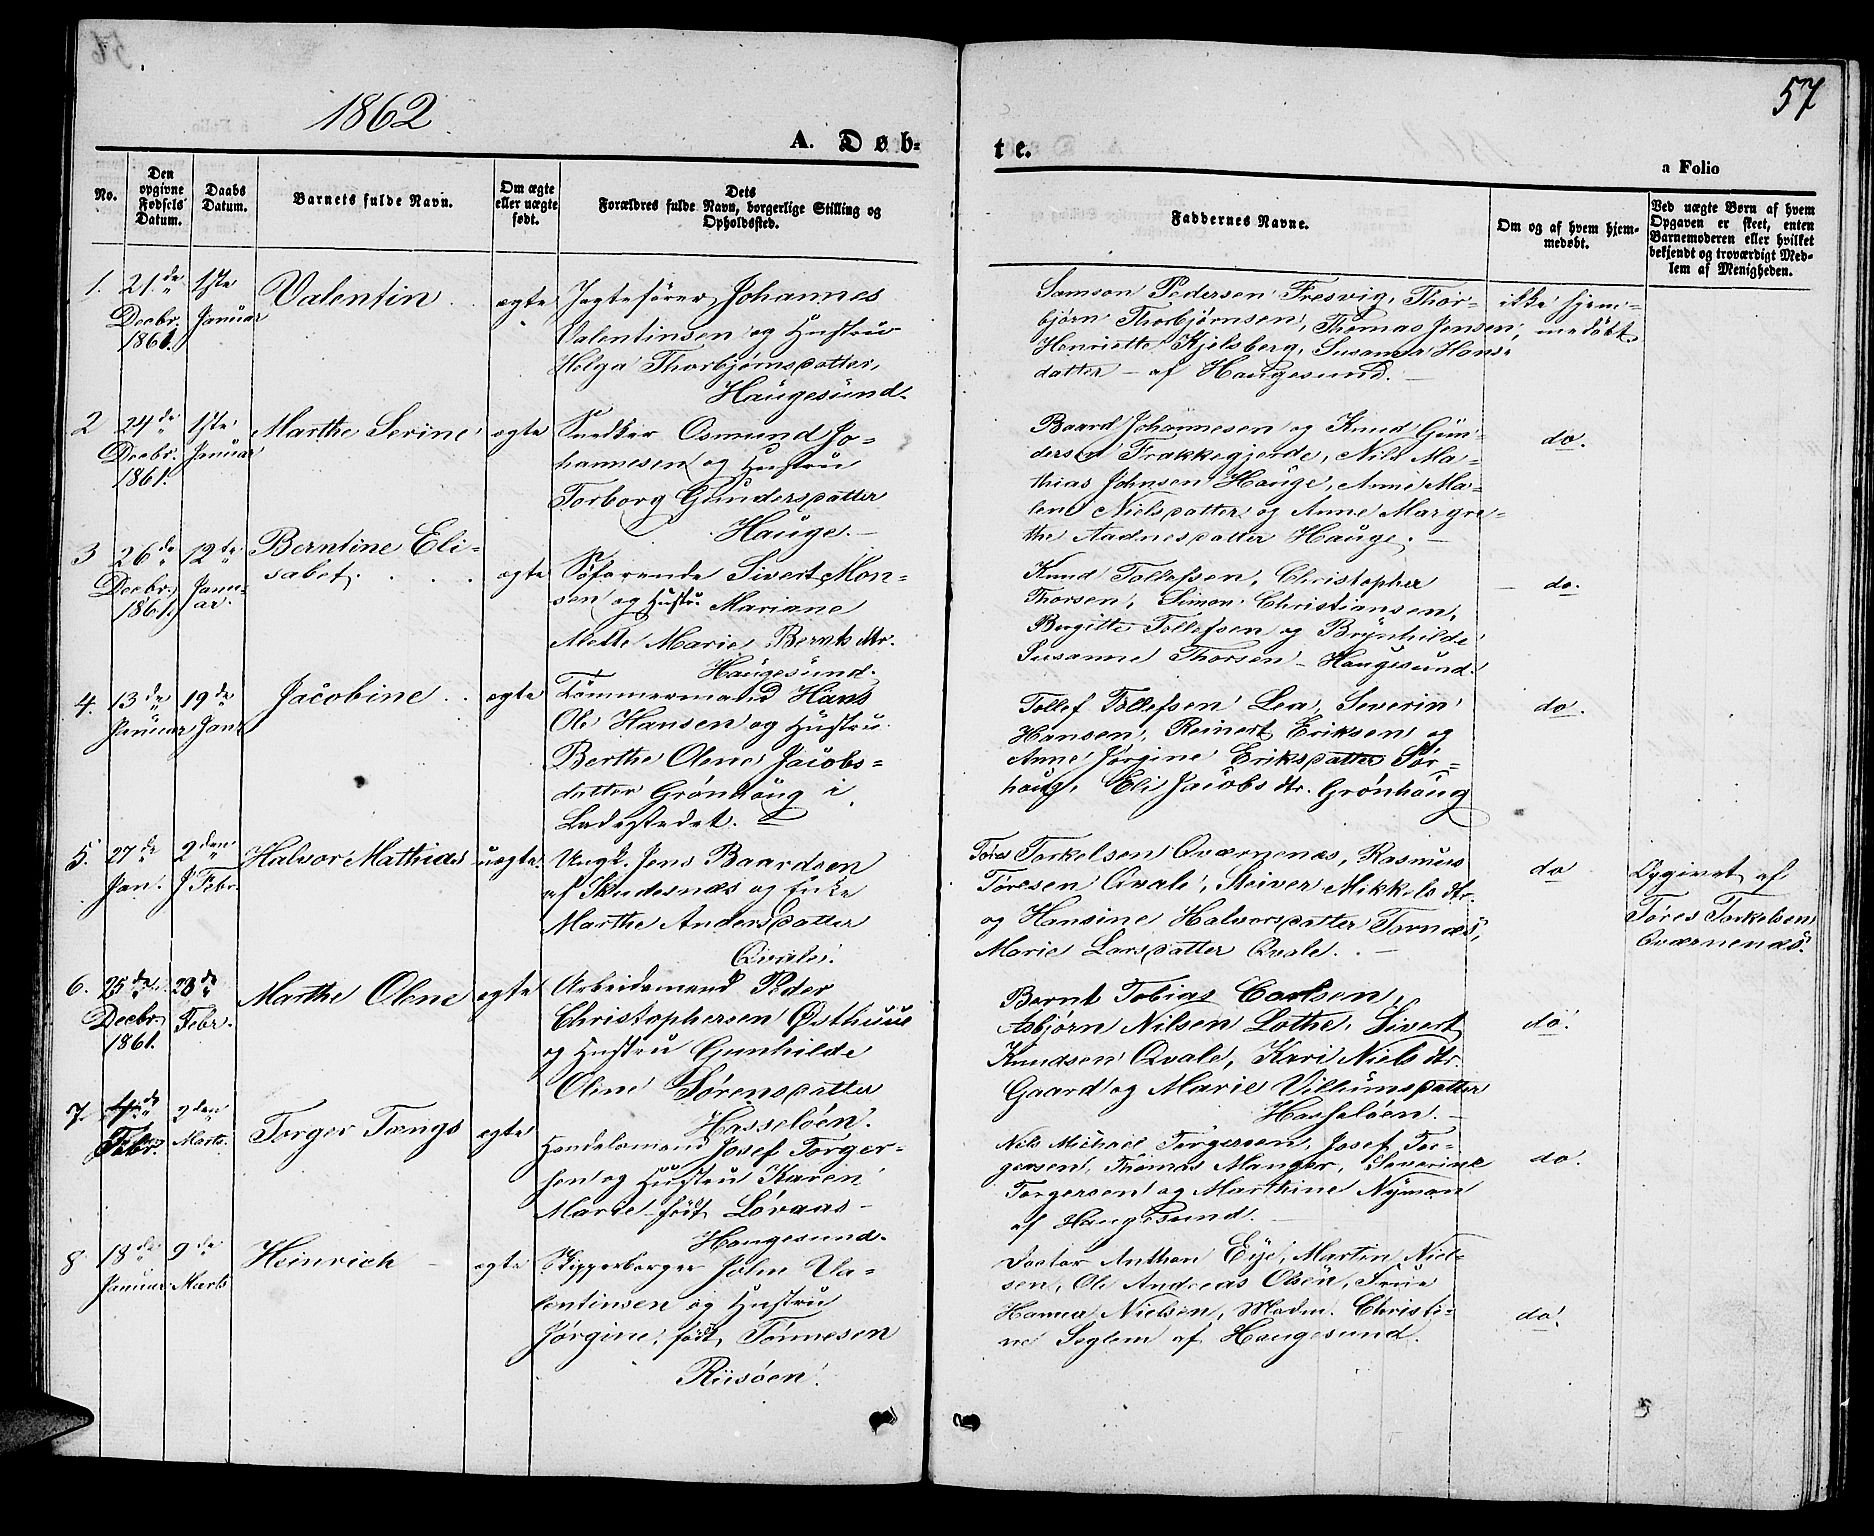 57
1862
A. Døb-
te.
a Folio
No.
Den opgivne Fødsels Datum.
Daabs Datum.
Barnets fulde Navn.
Om ægte eller uægte født.
Dets Forældres fulde Navn, borgerlige Stilling og Opholdssted.
Faddernes Navne.
Om og af hvem hjemmedøbt.
Ved uægte Børn af hvem Opgaven er skeet, enten Barnemoderen eller hvilket bekjendt og troværdigt Medlem af Menigheden.
1. 21de Decbr. 1861. 1ste Januar Valentin ægte
Jagtefører Johannes
Valentinsen og Hustru
Helga Thorbjørnsdatter,
Haugesund.
Samson Pedersen Fresvig, Thor-
bjørn Thorbjørnsen, Thomas Jensen,
Henriette Kjelsberg, Susanna Hans-
datter – af Haugesund. –
ikke hjem-
medøbt.
2 24de Decbr. 1861. 1ste Januar Marthe Serine ægte
Snedker Osmund Jo-
hannesen og Hustru
Torborg Gundersdatter
Hauge. –
Baard Johannesen og Knud Gun-
dersen Frakkegjerde, Nils Ma-
thias Johnsen Hauge, Anne Ma-
lene Nielsdatter og Anne Margre-
the Aadnesdatter Hauge. –
do.
3 26de Decbr. 1861. 12te Janu-
ar. Berntine Eli-
sabet. ægte
Søfarende Sivert Mon-
sen og Hustr. Mariane
Mette Marie Bernts dtr.
Haugesund.
Knud Tollefsen, Christopher
Thorsen, Simon Christiansen,
Birgitte Tollefsen og Brynhilde
Susanne Thorsen – Haugesund.
do.
4. 13de Januar 19de Jan. Jacobine ægte
Tømmermand Hans
Ole Hansen og Hustru
Berthe Oline Jacobs-
datter Grønhaug i
Ladestedet. –
Tollef Tollefsen Lea, Severin
Hansen, Reinert Eriksen og
Anne Jørgine Eriksdatter Sør-
haug, Eli Jacobs dtr. Grønhaug
do.
5. 27de Jan. 2den Febr. Halvor Mathias uægte
Ungk. Jens Baardsen
af Skudesnæs og Enke
Marthe Andersdatter
Qvale.
Tøres Torkelsen Qværnenæs, Rasmus
Tøresen Qvale, Steiver Mikkels dtr.
og Hansine Halvorsdatter Tornæs,
Marie Larsdatter Qvale. –
do
Opgivet af
Tøres Torkelsen
Qværnenæs.
6. 25de Decbr. 1861. 23de Febr. Marthe Oline ægte
Arbeidsmand Peder
Christophersen Østhuus
og Hustru Gunhilde
Oline Sørensdatter
Hasseløen.
Bernt Tobias Carlsen,
Asbjørn Nilsen Lothe, Sivert
Knudsen Qvale, Kari Niels dtr.
Gaard og Marie Villumsdatter
Hasseløen. –
do.
7. 4de Febr. 2den Marts. Torger Tangs ægte
Handelsmand Josef Torger-
sen og Hustru Karen
Marie født Løvaas –
Haugesund.
Nils Michael Torgersen, Josef Tor-
gersen, Thomas Manger, Severine
Torgersen og Marthine Nyman
af Haugesund. –
do.
8 18de Januar 9de Marts Heinrich – ægte
Skipperborger John Va-
lentinsen og Hustru
Jørgine, født Tønnesen
Riisøen.
Doctor Anthon Eye, Martin Niel-
sen, Ole Andreas Olsen, Frue
Hanna Nielsen, Madm. Christi-
ne Seglem af Haugesund.
do.